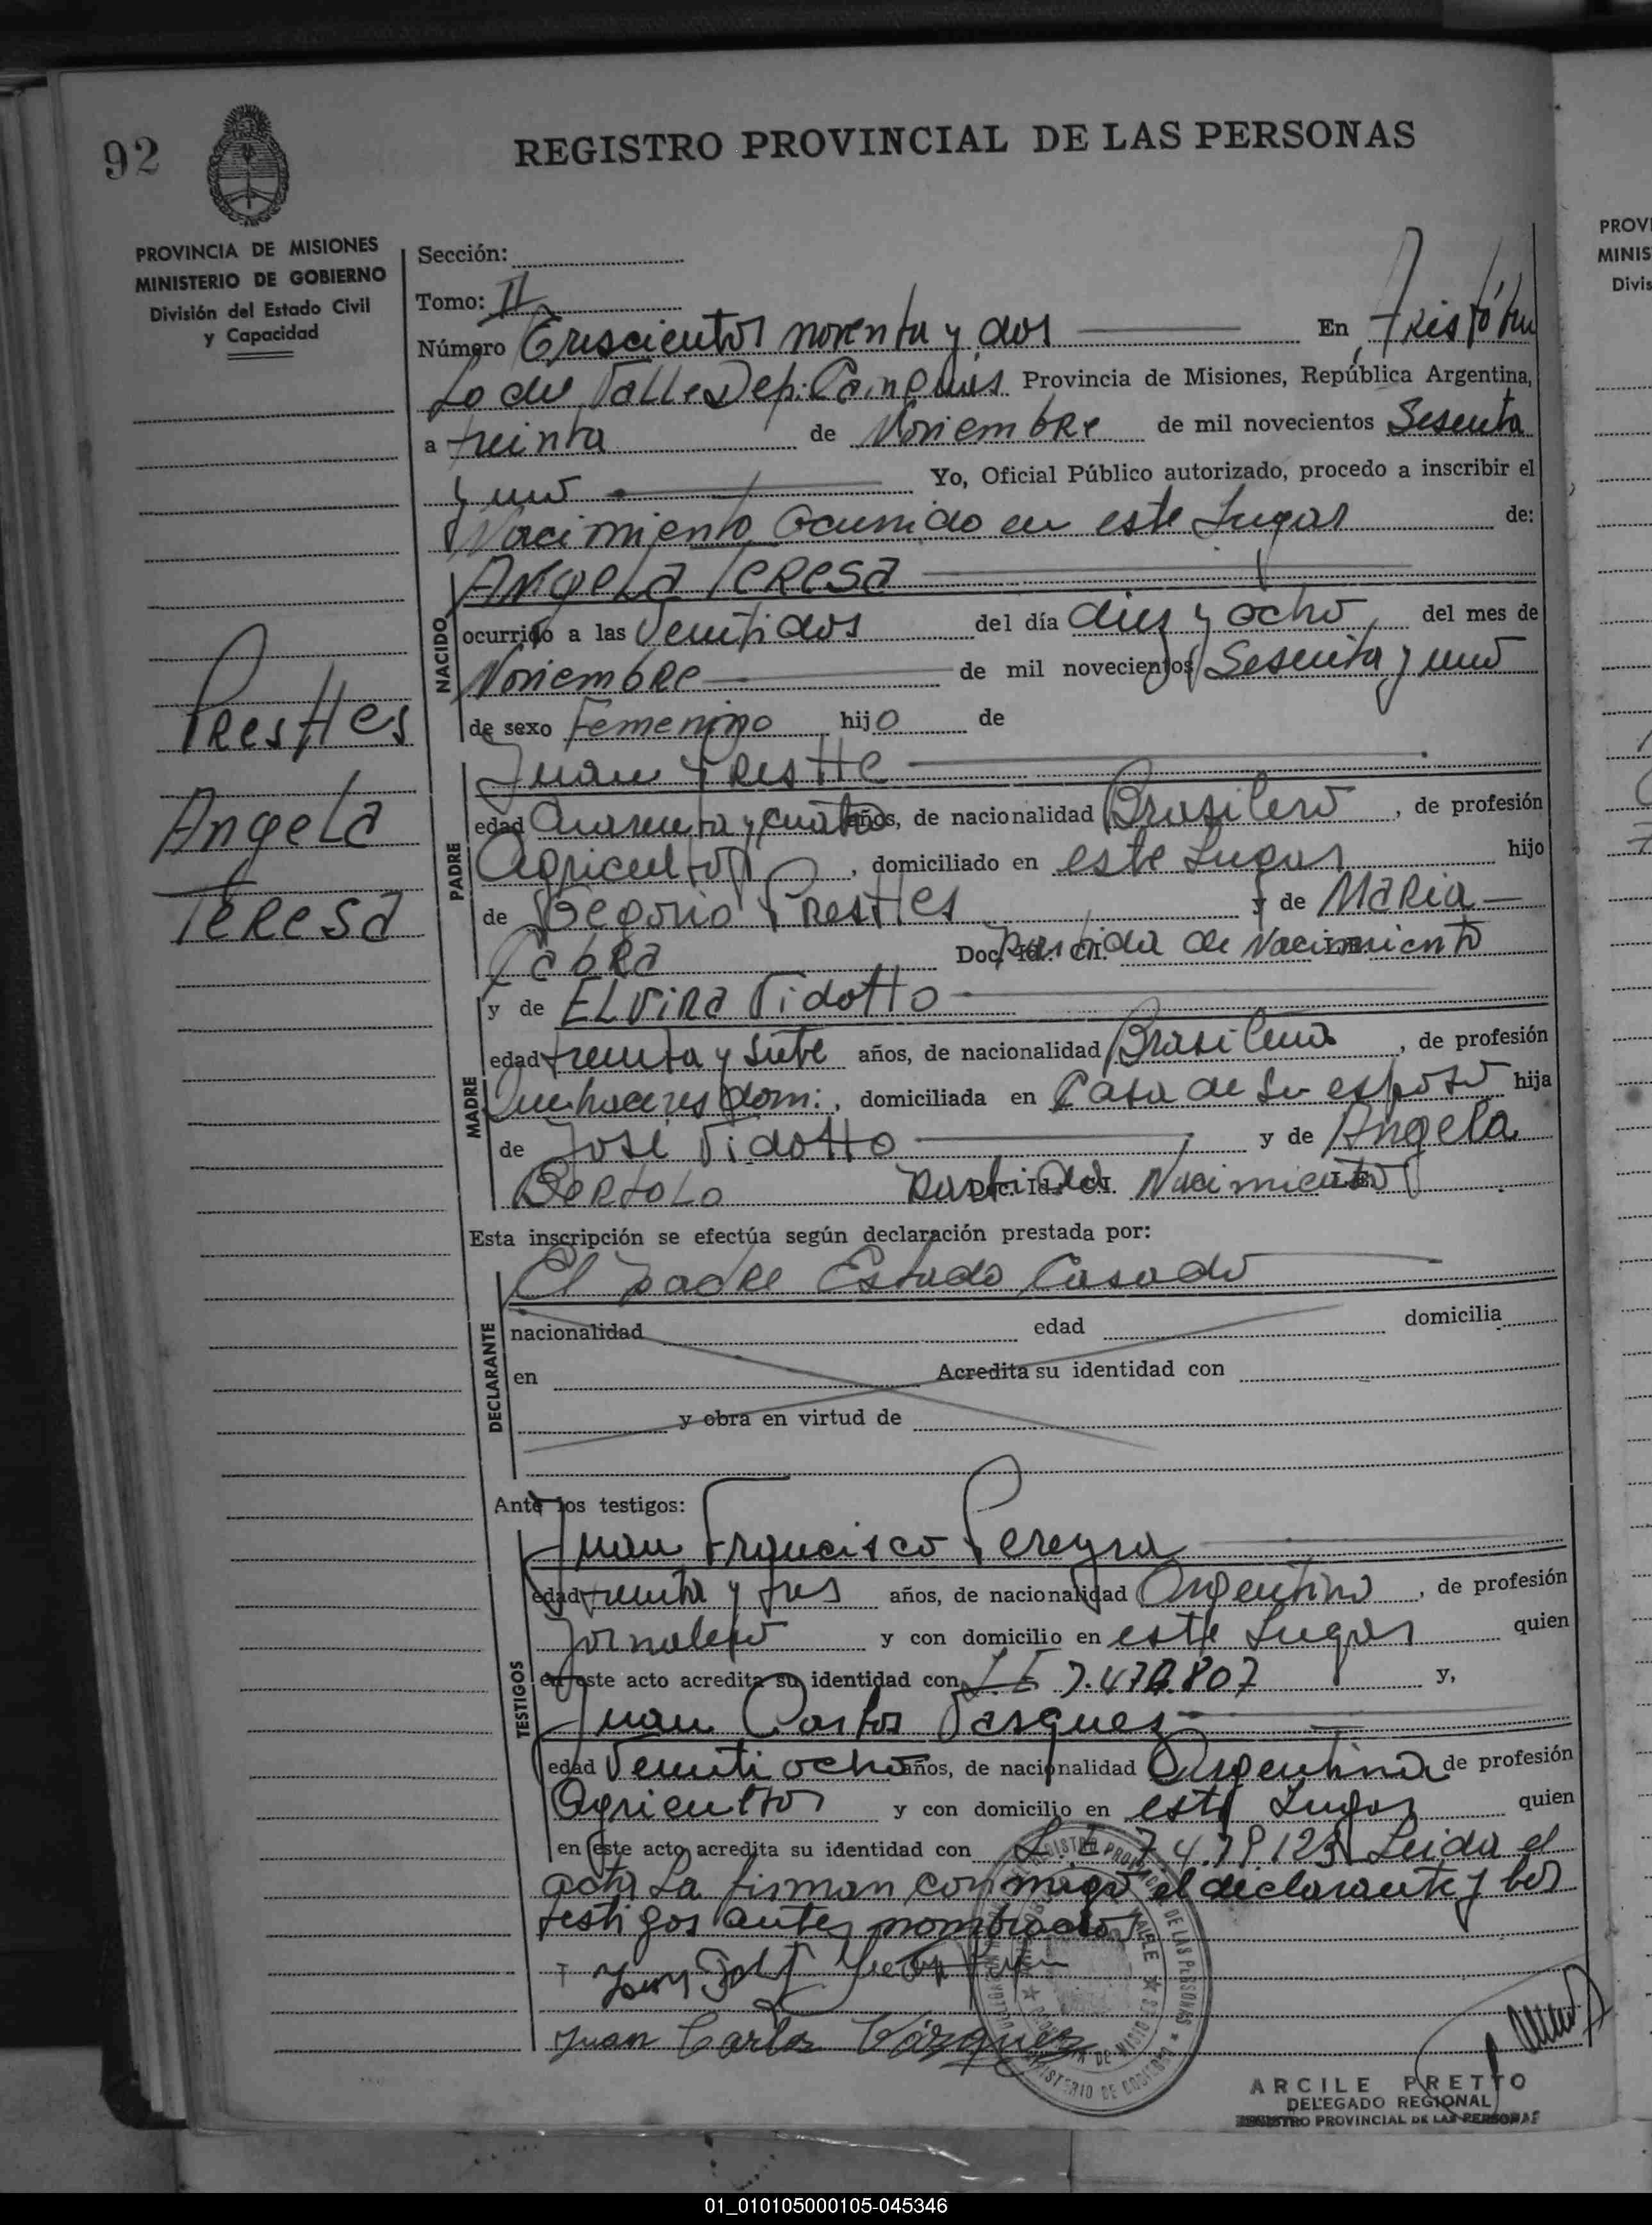 92
REGISTRO PROVINCIAL DE LAS PERSONAS
PROVINCIA DE MISIONES
MINISTERIO DE GOBIERNO
División del Estado Civil
y Capacidad
Prestes
Angela
Teresa
Sección:
Tomo: II
Número Trescientos noventa y dos En Aristóbu
Lo del Valle Dep. Cainguas Provincia de Misiones, República Argentina,
a treinta de Noviembre de mil novecientos Sesenta
y uno Yo, Oficial Público autorizado, procedo a inscribir el
Nacimiento Ocurrido en este Lugar de:
NACIDO
Angela Teresa
ocurrido a las Veintidos del día diez y ocho del mes de
Noviembre de mil novecientos Sesenta y uno
de sexo Femenino hijo de
PADRE
Juan Prestte
edad Cuarenta y cuatro años, de nacionalidad Brasilero, de profesión
Agricultor, domiciliado en este Lugar hijo
de Gegorio Presttes y de Maria
Cabra Doc. Id. C.I. partida de Nacimiento
MADRE
y de ELvira Vidotto
edad treinta y siete años, de nacionalidad Brasilena, de profesión
Quehaceres dom:, domiciliada en Casa de su esposo hija
de José Vidotto y de Angela
BertoLo partida Nacimiento
Esta inscripción se efectúa según declaración prestada por:
DECLARANTE
El padre Estado Casado
nacionalidad edad domicilia
en Acredita su identidad con
y obra en virtud de
Ante los testigos:
TESTIGOS
Juan Francisco Pereyra
edad treinta y tres años, de nacionalidad Argentino, de profesión
Jornalero y con domicilio en este Lugar quien
en este acto acredita su identidad con L.E y,
Juan Carlos Vasquez
edad Veinti ocho años, de nacionalidad Argentina de profesión
Agricultor y con domicilio en este Lugar quien
en este acto acredita su identidad con L.E Leida el
acta La firman conmigo el declarante y los
testigos antes nombrados
Juan Carlos Vázquez
ARCILE PRETTO
DELEGADO REGIONAL
REGISTRO PROVINCIAL DE LAS PERSONAS
PROVI
MINIS
Divis
01_010105000105-045346